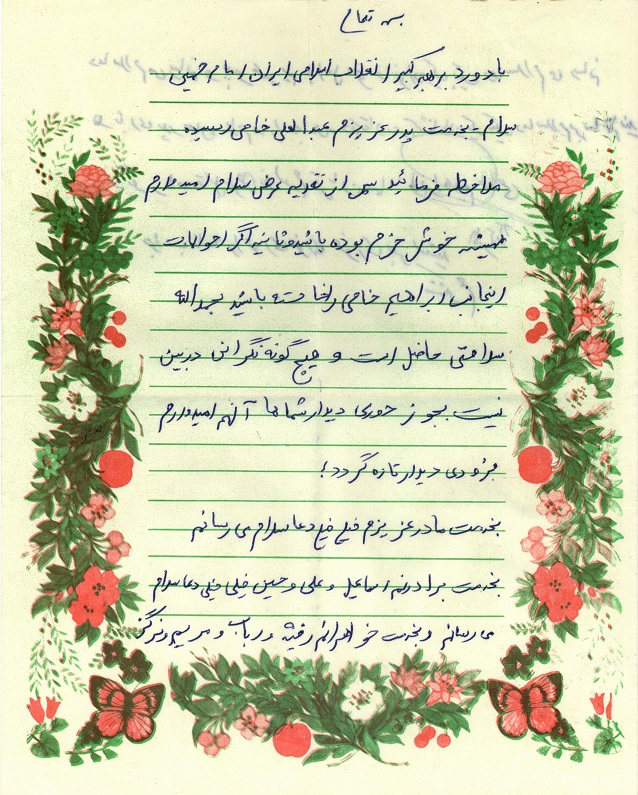 بسمه تعالی
با درود بر رهبر کبیر انقلاب اسلامی ایران امام خمینی
سلام - بخدمت پدر عزیزم عبدالعلی خاصی رسیده
ملاحظه فرمائید پس از تقدیم عرض سلام امیدوارم
همیشه خوش خرم بوده باشید و ثانیه اگر احوالات
اینجانب ابراهیم خاصی را خواسته باشید بحمدالله
سلامتی حاصل است و هیچ گونه نگرانی در بین
نیست بجز دوری دیدار شماها آنهم امیدوارم
بزودی دیدار تازه گردد!
بخدمت مادر عزیزم خیلی خیلی دعا سلام می رسانم
بخدمت برادرانم اسماعیل و علی و حسین خیلی خیلی دعا سلام
می رسانم و بخدمت خواهرانم رقیه و رباب و مریم و نرگس